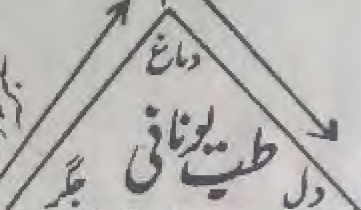 دماغ
طب یونانی
جگر
دل